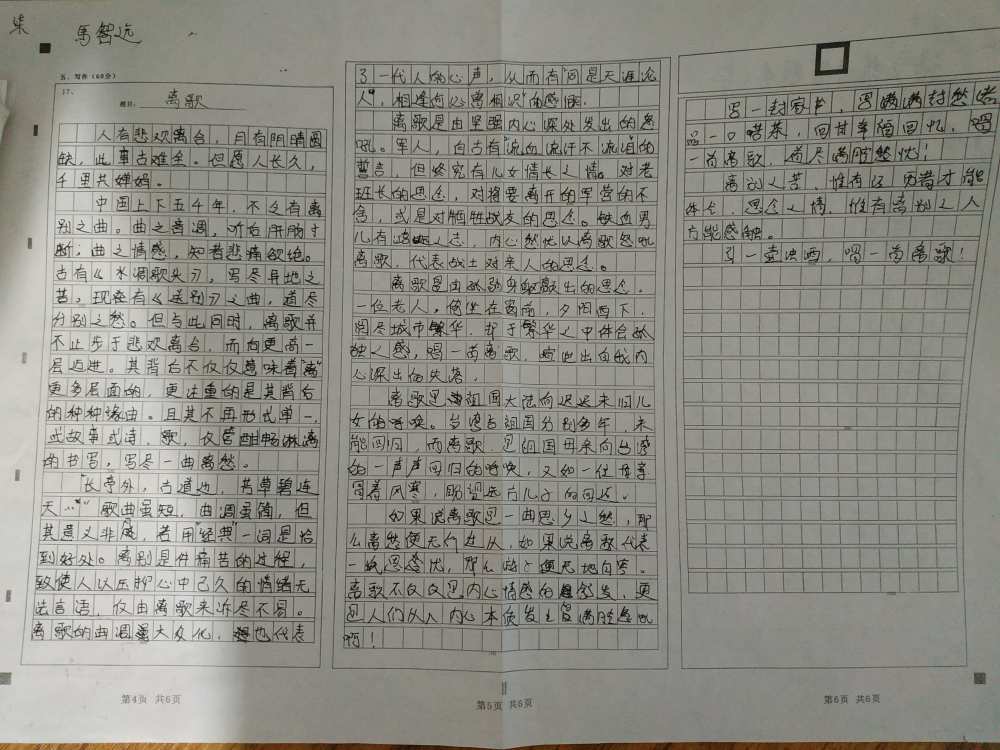 柒
馬智远
五、写作（60分）
17、
题目： 离歌
人有悲欢离合，月有阴晴圆
缺，此事古难全。但愿人长久，
千里共婵娟。
中国上下五千年，不乏有离
别之曲。曲之音调，听后肝肠寸
断；曲之情感，知者悲痛欲绝。
古有《水调歌头》，写尽异地之
苦，现在有《送别》之曲，道尽
分别之愁。但与此同时，离歌并
不止步于悲欢离合，而向更高一
层迈进。其背后不仅仅意味着"离"
更多层面的，更注重的是其背后
的种种缘由。且其不再形式单一，
或故事或诗、歌，仅管酣畅淋漓
的书写，写尽一曲离愁。
"长亭外，古道边，芳草碧连
天…"歌曲虽短，曲调虽简，但
其意义非凡，若用"经典"一词是恰
到好处。离别是件痛苦的过程，
致使人以压抑心中已久的情绪无
法言语，仅由离歌来诉尽不易。
离歌的曲调虽大众化，也代表
了一代人的心声，从而有"同是天涯沦
人"，相逢何必离相识"的感慨。
离歌是由坚强内心深处发出的怒
吼。军人，自古有"流血流汗不流泪"的
誓言，但终究有儿女情长之情。对老
班长的思念，对将要离开的军营的不
舍，或是对牺牲战友的思念。铁血男
儿有之志，内心愁忧以离歌怒吼
离歌，代表战士对亲人的思念。
离歌是由孤歌身躯献出的思念。
一位老人，倚坐在窗前，夕阳西下，
阅尽城市繁华，却于繁华之中体会孤
独之感，唱一首离歌，唱出自我内
心深出的失落。
离歌是祖国大陆向迟迟未归儿
女的呼唤。台湾与祖国分别多年，未
能回归，而离歌，是祖国母亲向台湾
的一声声回归的呼唤，又如一位母亲
冒着风寒，盼望远方儿子的回返。
如果说离歌是一曲思乡之愁，那
么离愁便无何过从，如果说离歌代表
一妖思念忧，那么便无地自容。
离歌不仅仅是内心情感的愁发，更
是人们从内心本质发出满腔怒吼
啊！
写一封家书，写满满封愁绪
品一口啥茶，回甘幸福回忆，唱
一首离歌，道尽满腔愁忧！
离别之苦，惟有过勇者才能
体会，思念之情，惟有离别之人
方能感触。
引一壶浊酒，唱一首离歌！
第4页 共6页
第5页 共6页
第6页 共6页